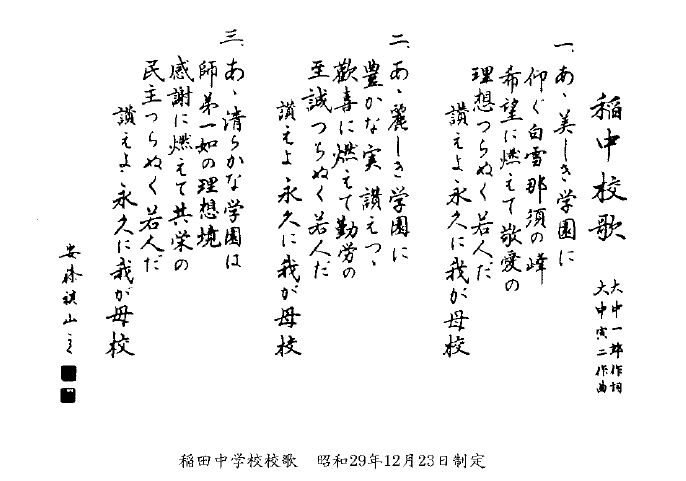 稲中校歌
大中一郎作詞
大中寅二作曲
一、あゝ美しき学園に
仰ぐ白雪那須の峰
希望に燃えて敬愛の
理想つらぬく若人だ
讃えよ永久に我が母校
二、あゝ麗しき学園に
豊かな実讃えつゝ
歓喜に燃えて勤労の
至誠つらぬく若人だ
讃えよ永久に我が母校
三、あゝ清らかな学園は
師弟一如の理想境
感謝に燃えて共栄の
民主つらぬく若人だ
讃えよ永久に我が母校
稲田中学校校歌 昭和29年12月23日制定